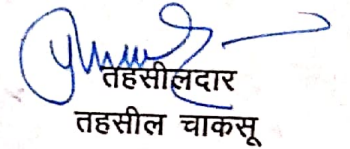 तहसीलदार
तहसील चाकसू